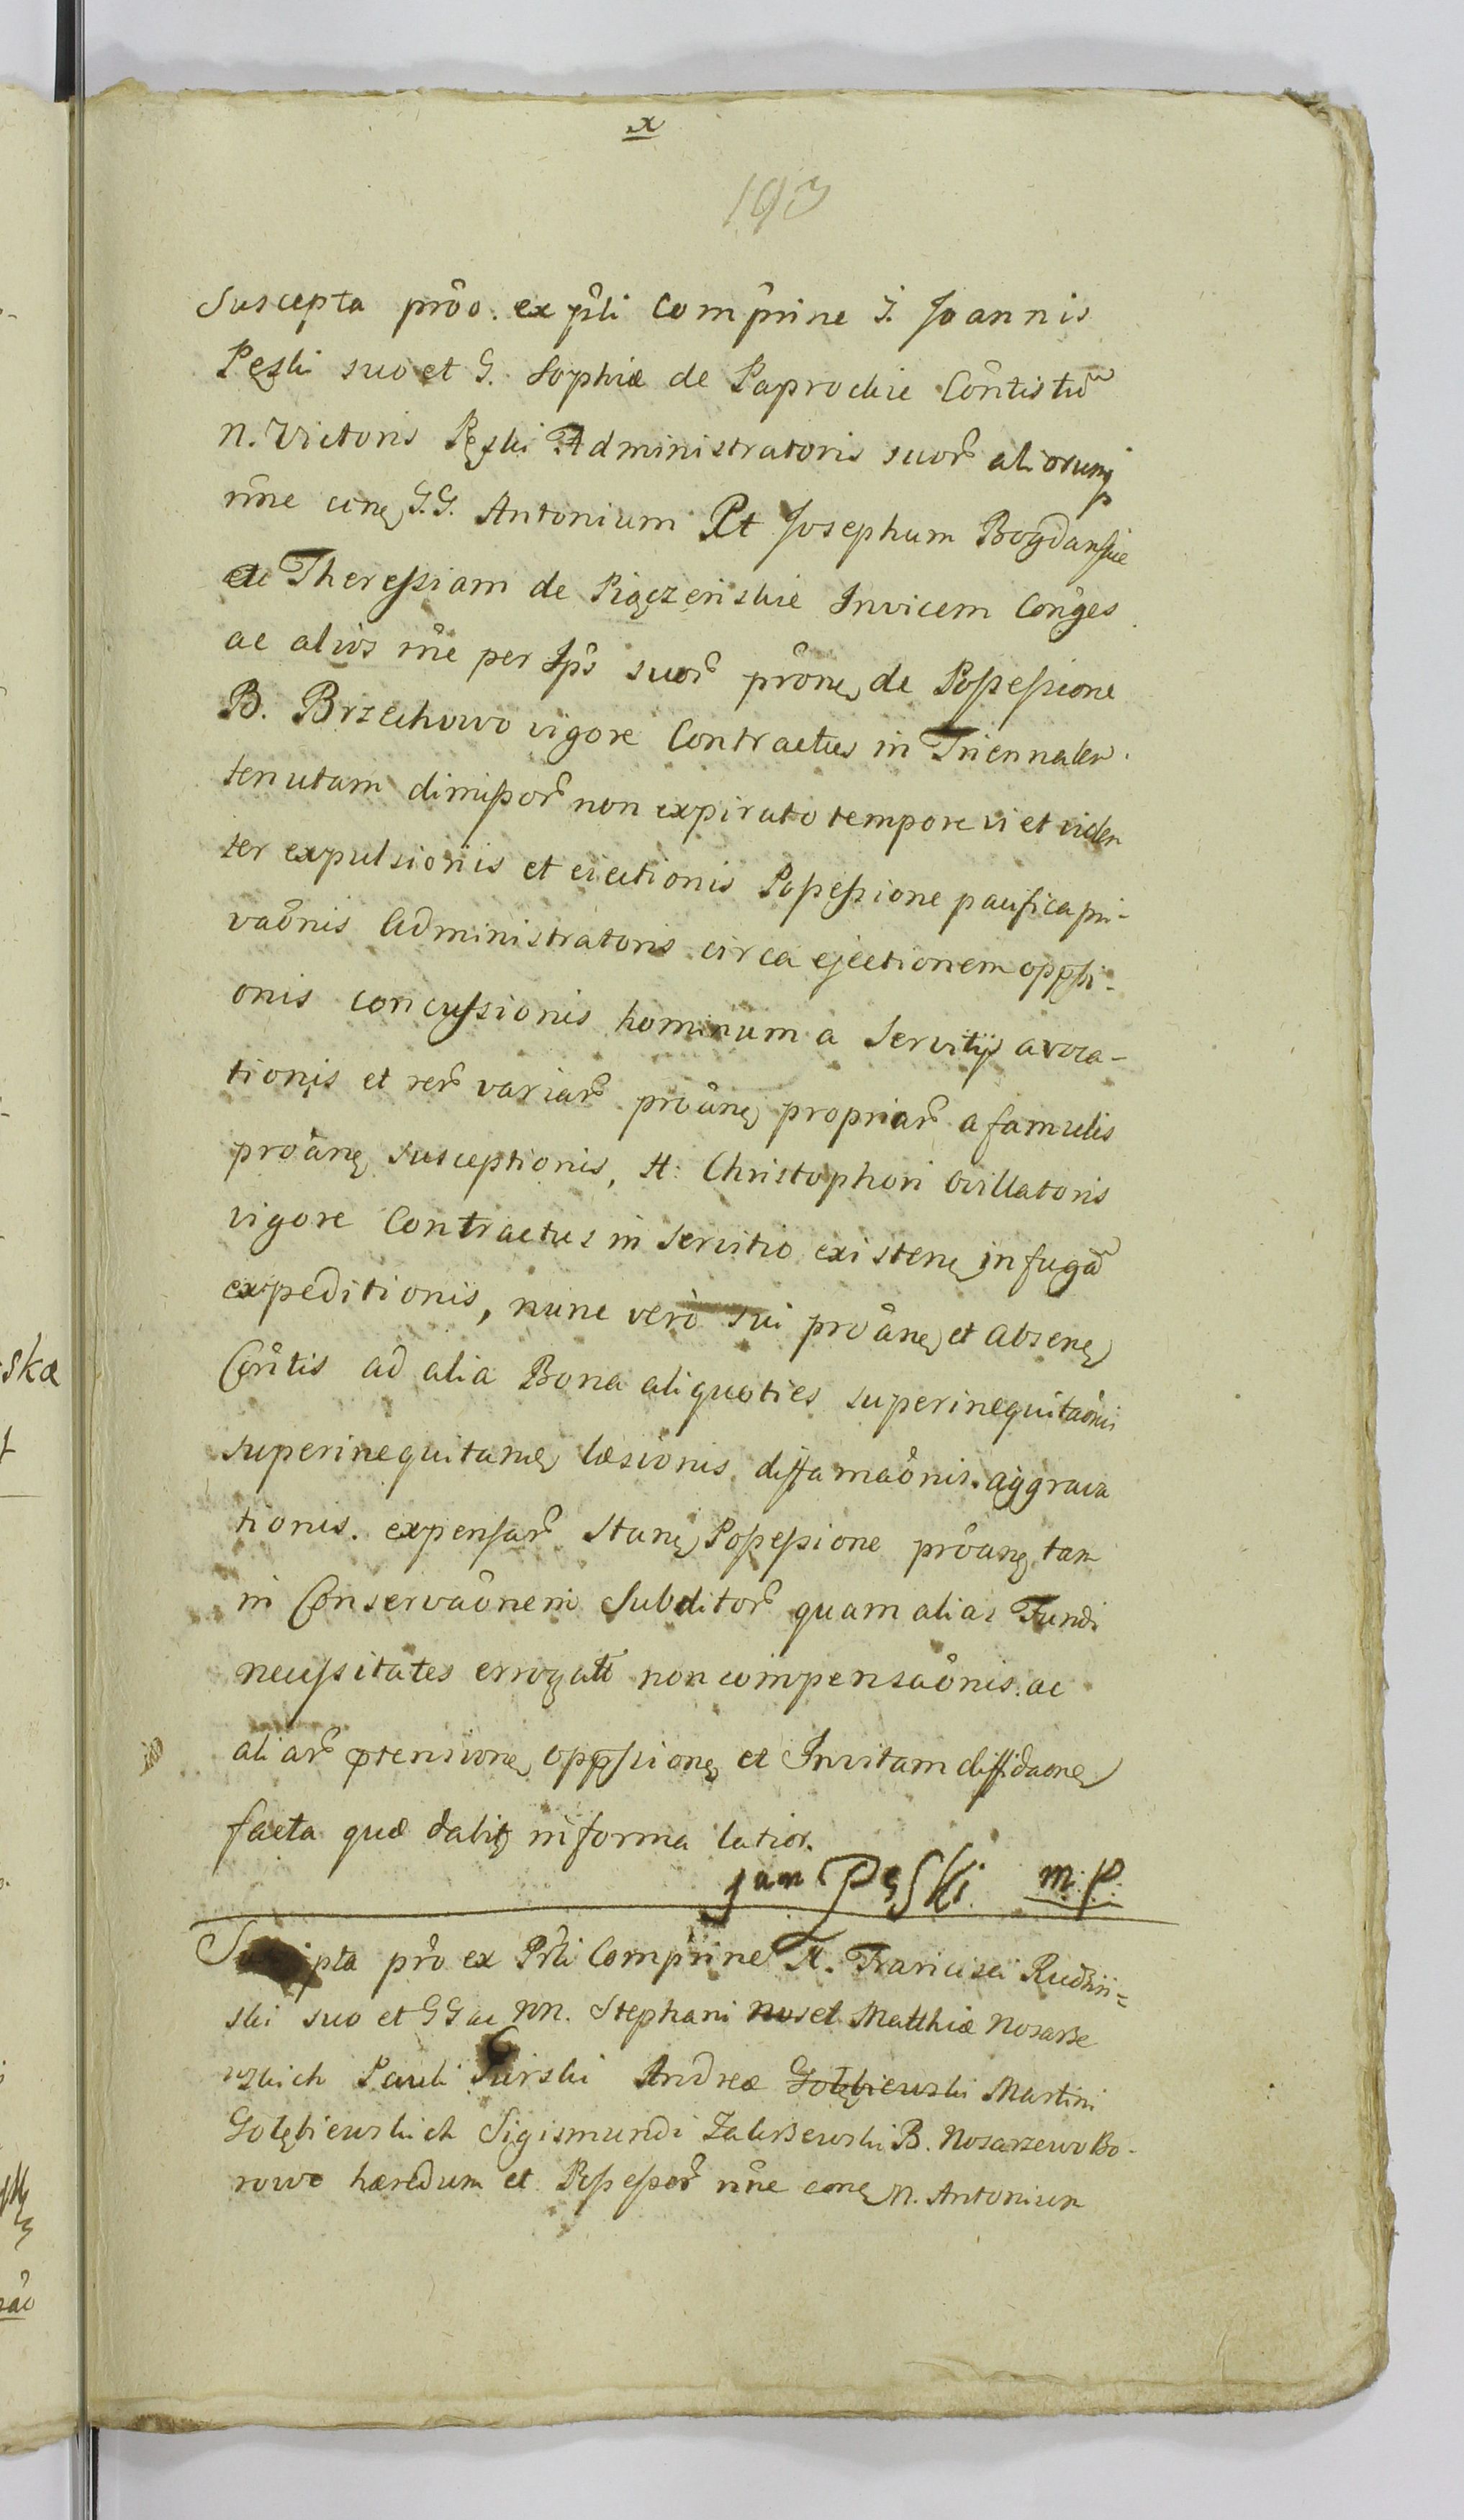 x
193
Suscepta prôo. ex p̂ti Comp̂rine G. Joannis
Pęski suo et G. Sophiæ de Paprockie Côntis tû
N. Victoris Pęski Administratoris suor̂ aliorumq
n̂ne cinę G.G. Antonium Et Josephum Bogdanskie
et Theressiam de Piączeńskie Invicem Con̂ges
ac alios n̂ne per Ip̂s suor̂ prônę de Possessione
B. Brzechowo vigore Contractus in Triennalem
tenutam dimissor̂ non expirato tempore vi et violen
ter expulsionis et eiectionis Possessione pacifica pri-
vaônis Administratoris circa ejectionem oppssi-
onis concussionis hominum a Servitijs avoca-
tionis et rer̂ variar̂ proânę propriar̂ a famulis
proânę susceptionis, H. Christophori Ovillatoris
vigore Contractus in servitio existenę in fugâ
expeditionis, nunc vero sui proânę et absenę
Côntis ad alia Bona aliquoties superinequitaônis
superinequitanę læsionis diffamaônis. aggrava
tionis. expensar̂ Stanę Possessione proânę tam
in Conservaônem Subditor̂ quam alias Fundi
necessitates erogatî non compensaônis. ac
aliar̂ ptensionę oppssionę et Invitam diffidaonę
facta quæ dabitę in forma latior.
Jan Pęski m.p.
pta prô ex P̂rti Comp̂rine H. Francisci Rudziń=
ski suo et GG ac NN. Stephani Matthiæ Nosarze
wskich Pauli Andreæ Gołębiewski Martini
Gołębiewskich Sigismundi Zakrzewski B. Nosarzewo Bo-
rowe hæredum et Possessor̂ n̂ne conę N. Antonium